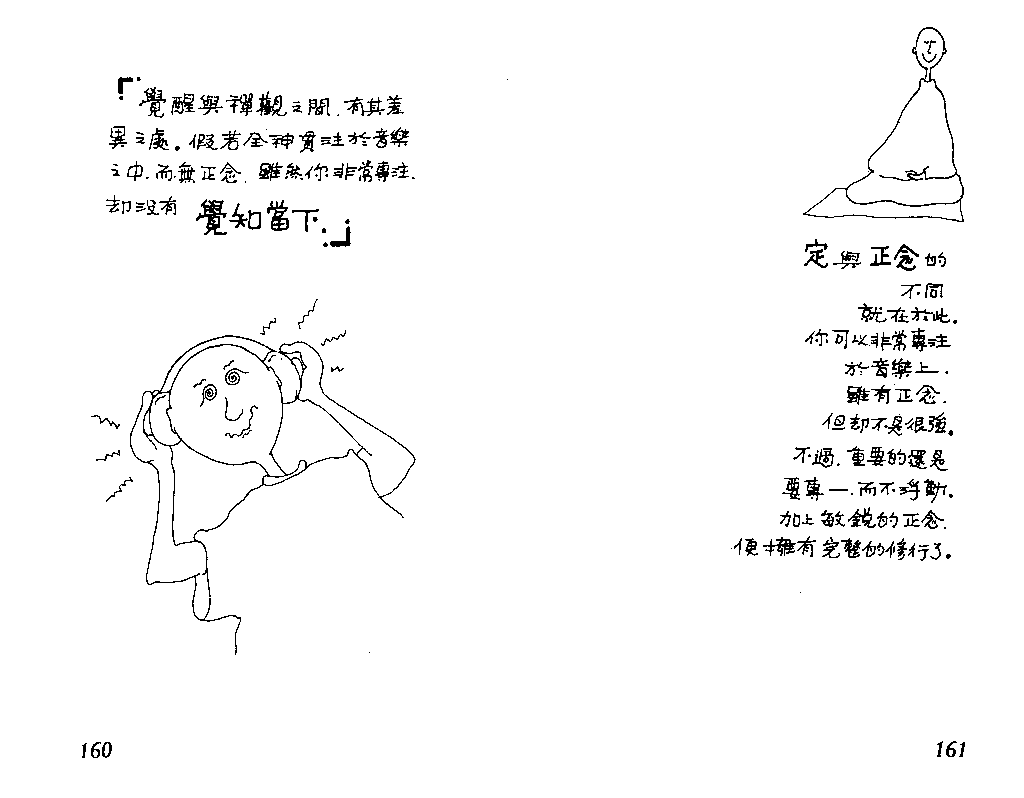 「覺醒與禪觀之間,有其差
異之處。假若全神貫注於音樂
之中,而無正念,雖然你非常專注,
却沒有 覺知當下。」
160
定與正念的
不同
就在於此。
你可以非常專注
於音樂上,
雖有正念,
但却不是很強。
不過,重要的還是
要專一,而不浮斷。
加上敏銳的正念,
便擁有完整的修行了。
161